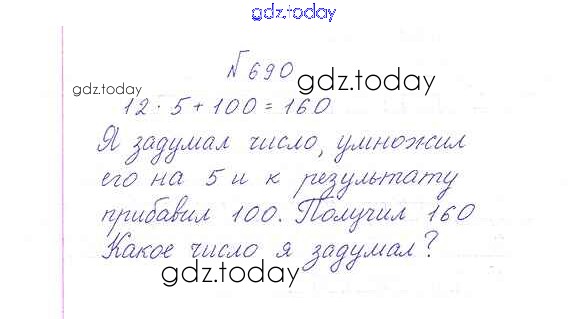 gdz.today
№690
gdz.today
gdz.today
12·5+100=160
Я задумал число, умножил
его на 5 и к результату
прибавил 100. Получил 160
Какое число я задумал?
gdz.today